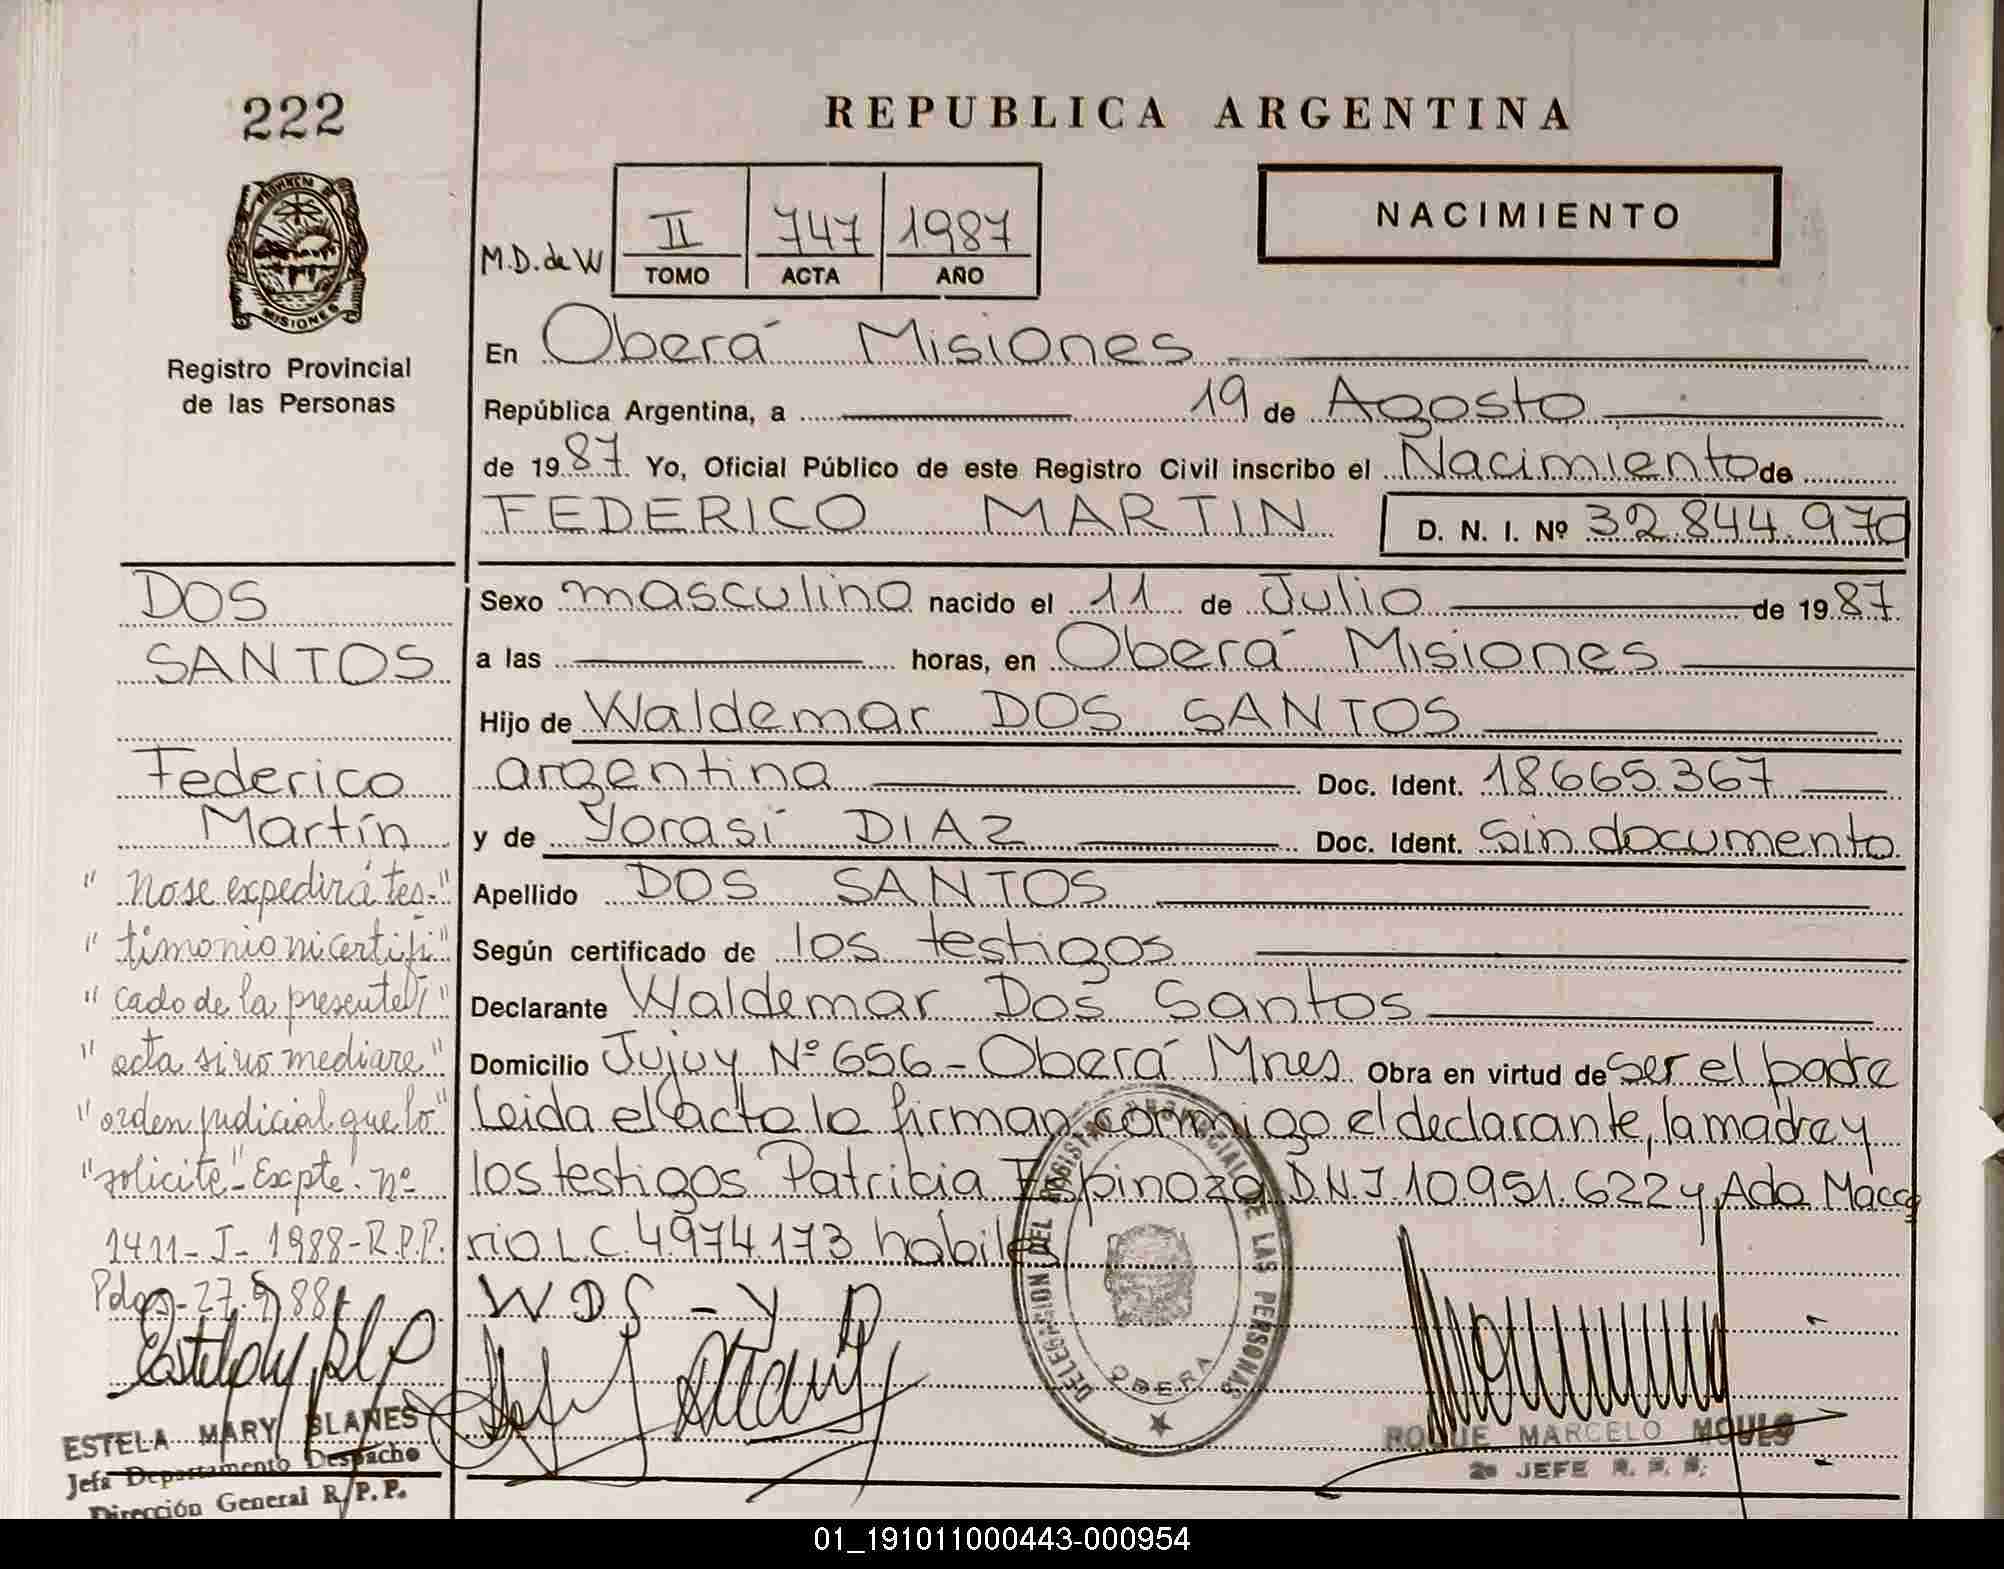 222
REPUBLICA ARGENTINA
PROVINCIA DE
MISIONES
Registro Provincial
de las Personas
M.D. de W
II 747 1987
TOMO ACTA AÑO
NACIMIENTO
En Oberá Misiones
República Argentina, a 19 de Agosto
de 1987. Yo, Oficial Público de este Registro Civil inscribo el Nacimiento de
FEDERICO MARTIN D. N. I. Nº 32.844.970
Sexo masculino nacido el 11 de Julio de 1987.
a las horas, en Oberá Misiones
Hijo de Waldemar DOS SANTOS
argentina Doc. Ident. 18.665.367
y de Yorasi DIAZ Doc. Ident. Sin documento
Apellido DOS SANTOS
Según certificado de los testigos
Declarante Waldemar Dos Santos
Domicilio Jujuy Nº 656 - Oberá Mnes Obra en virtud de ser el padre
Leida el acta la firman conmigo el declarante, la madre y
los testigos Patricia Espinoza D.N.I 10.951.622 y Ada Macca
rio L C. 4974.173 habiles
W D S - Y D
DOS
SANTOS
Federico
Martín
" No se expedirá tes-"
" timonio ni certifi"
" cado de la presente "
" acta si no mediare "
" orden judicial que lo "
" solicite" - Expte. nº
1411 - J - 1988 - R.P.P.
Pdas - 27.5.88
ESTELA MARY BLANES
Jefa Departamento Despacho
Dirección General R.P.P.
DELEGACION DEL REGISTRO PROVINCIAL DE LAS PERSONAS
OBERA
ROQUE MARCELO MOULS
2º JEFE R. P. P.
01_191011000443-000954